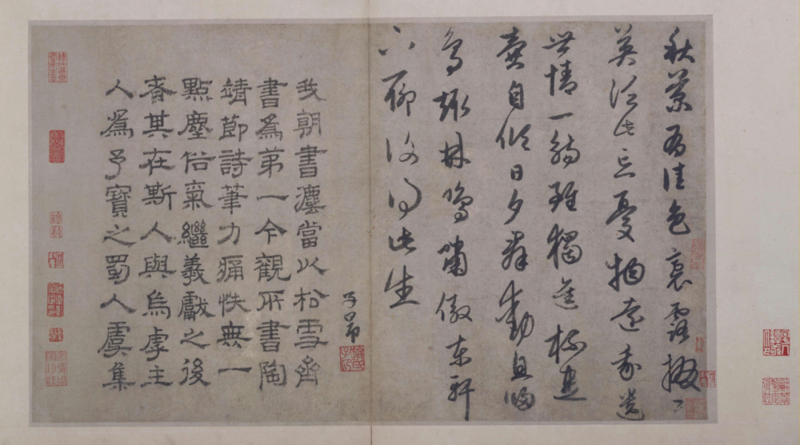 秋菊有佳色裛露掇其
英汎此忘憂物遠我遺
世情一觴雖獨進杯盡
壺自傾日夕群動息歸
鳥趨林鳴嘯傲東軒
下聊復得此生
子昂
我朝書灋當以松雪齊
書爲弟一今觀所書陶
靖節詩筆力痛快無一
點塵俗氣繼羲獻之後
者其在斯人與烏虖主
人爲予寶之蜀人虞集